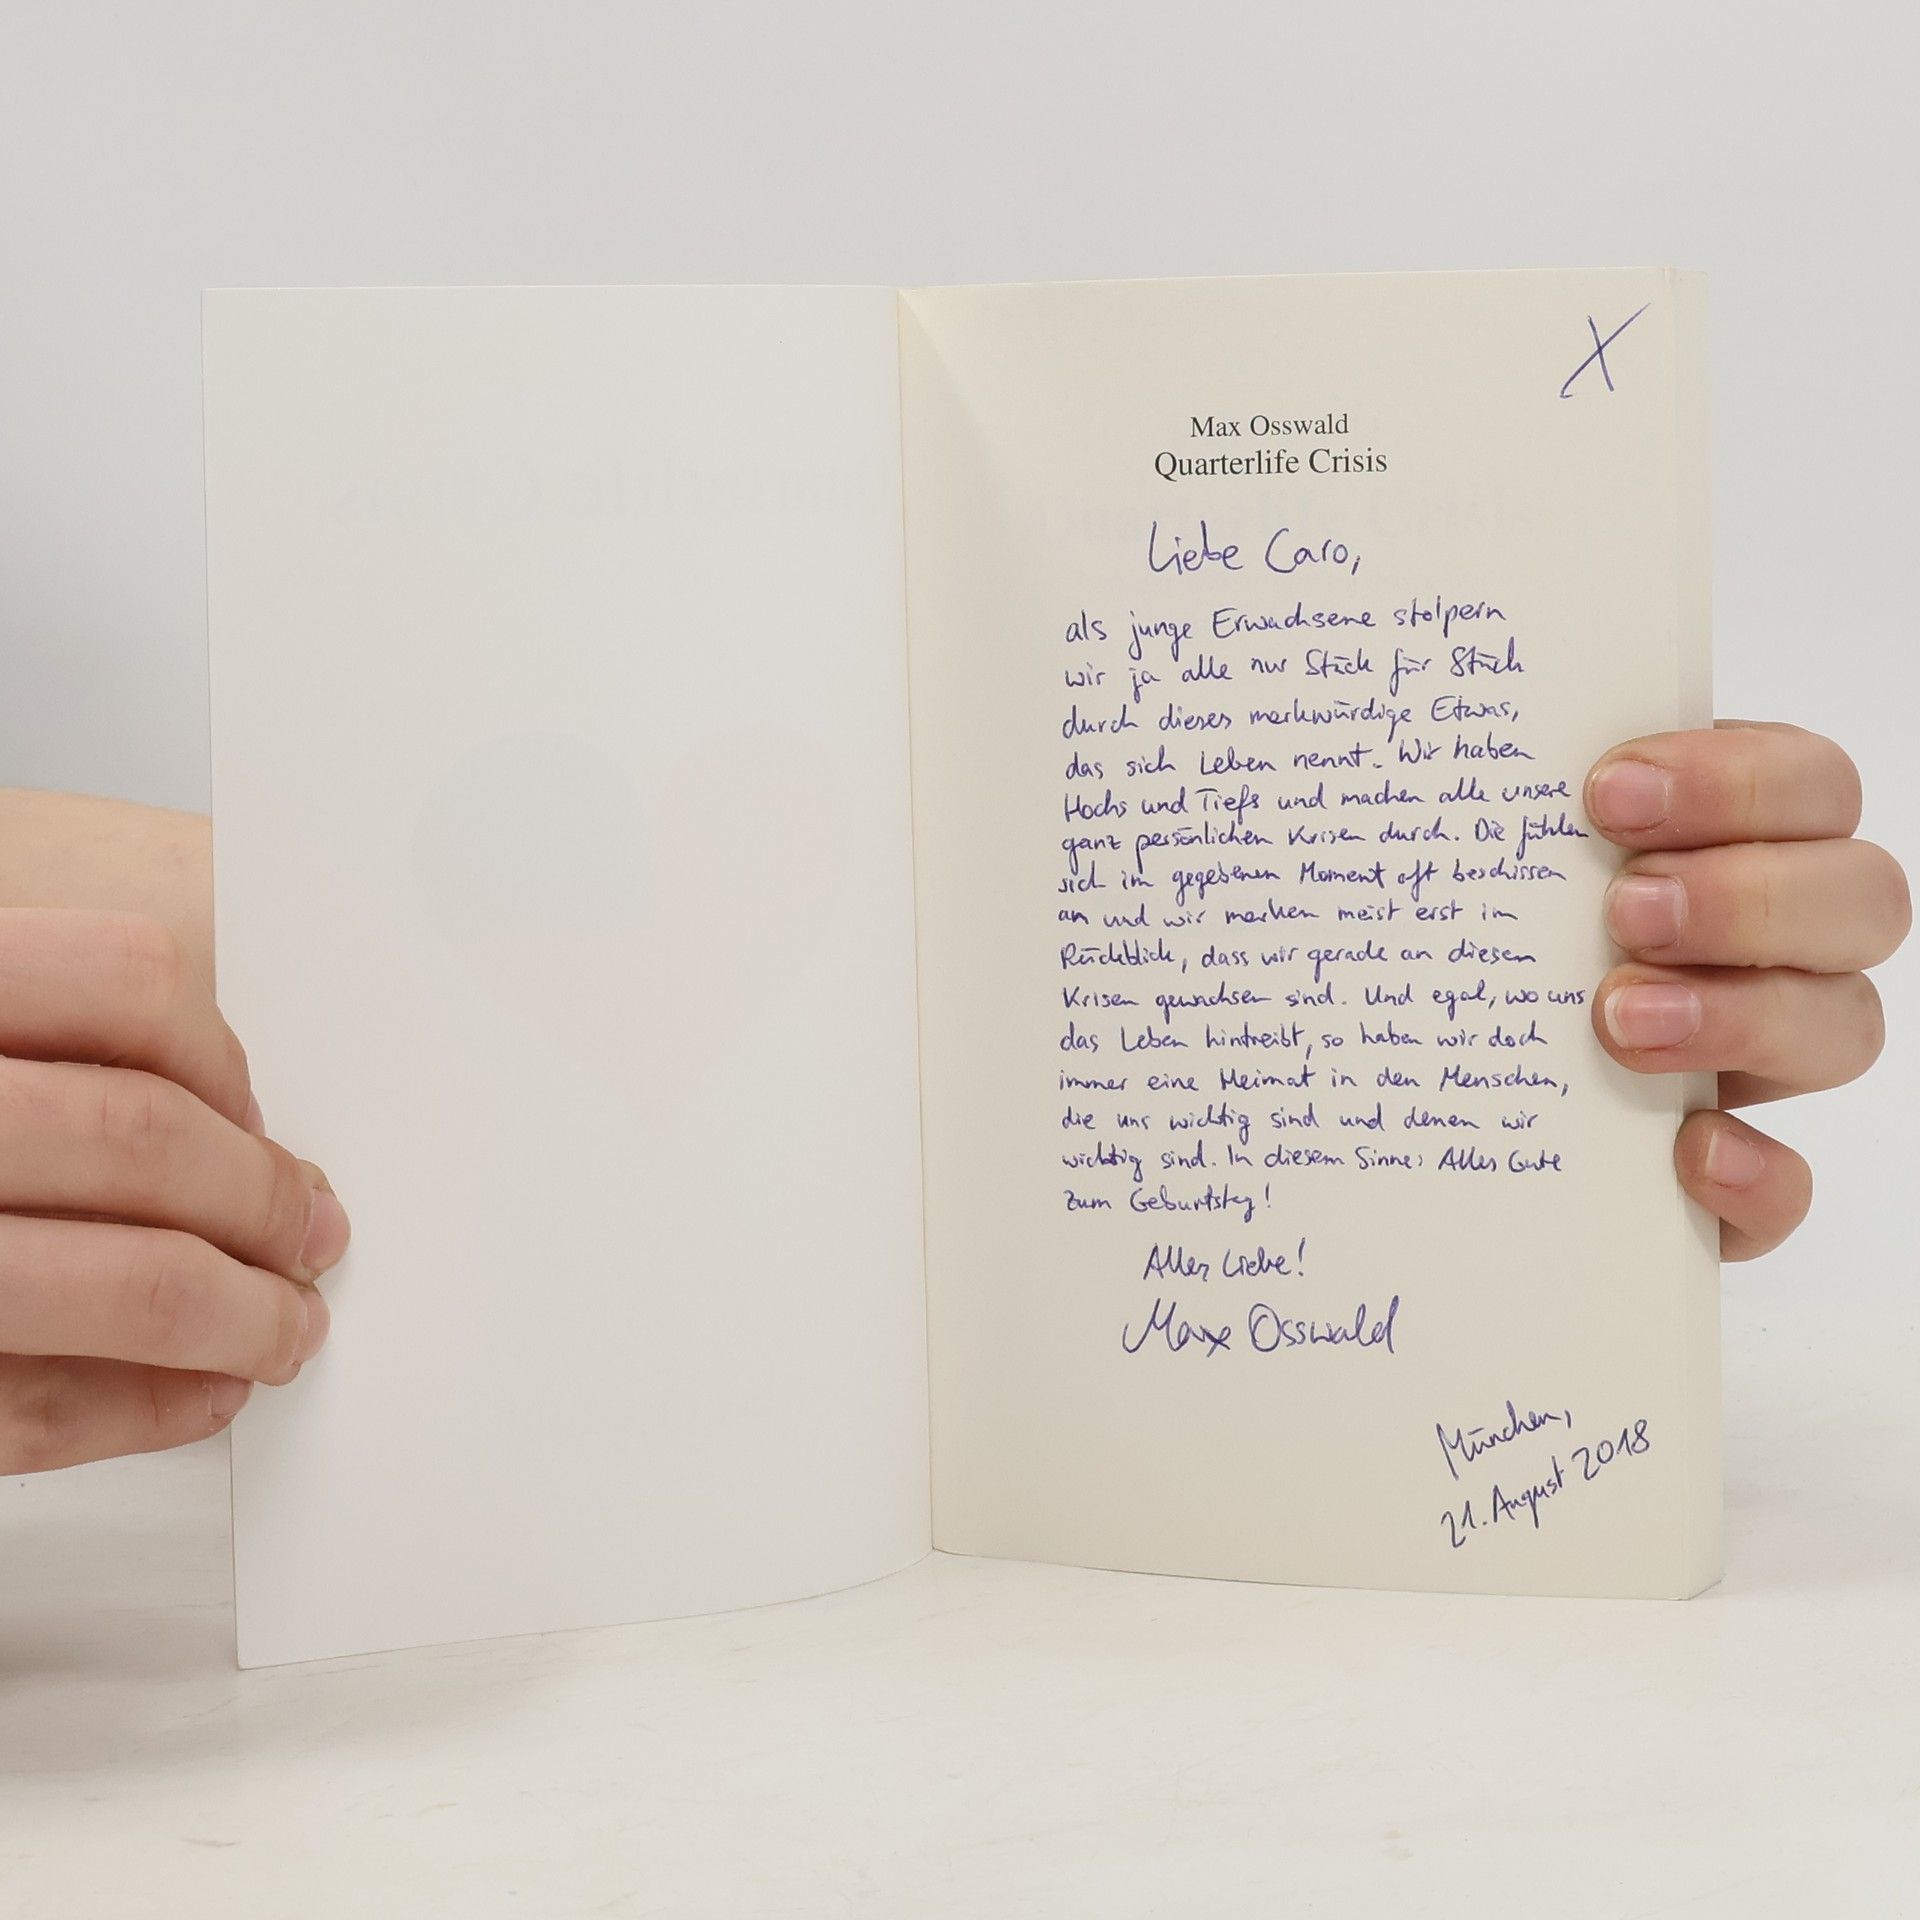 X
Max Osswald
Quarterlife Crisis
Liebe Caro,
als junge Erwachsene stolpern
wir ja alle nur Stück für Stück
durch dieses merkwürdige Etwas,
das sich Leben nennt. Wir haben
Hochs und Tiefs und machen alle unsere
ganz persönlichen Krisen durch. Die fühlen
sich im gegebenen Moment oft beschissen
an und wir merken meist erst im
Rückblick, dass wir gerade an diesen
Krisen gewachsen sind. Und egal, wo uns
das Leben hintreibt, so haben wir doch
immer eine Heimat in den Menschen,
die uns wichtig sind und denen wir
wichtig sind. In diesem Sinne: Alles Gute
zum Geburtstag!
Alles Liebe!
Max Osswald
München,
21. August 2018